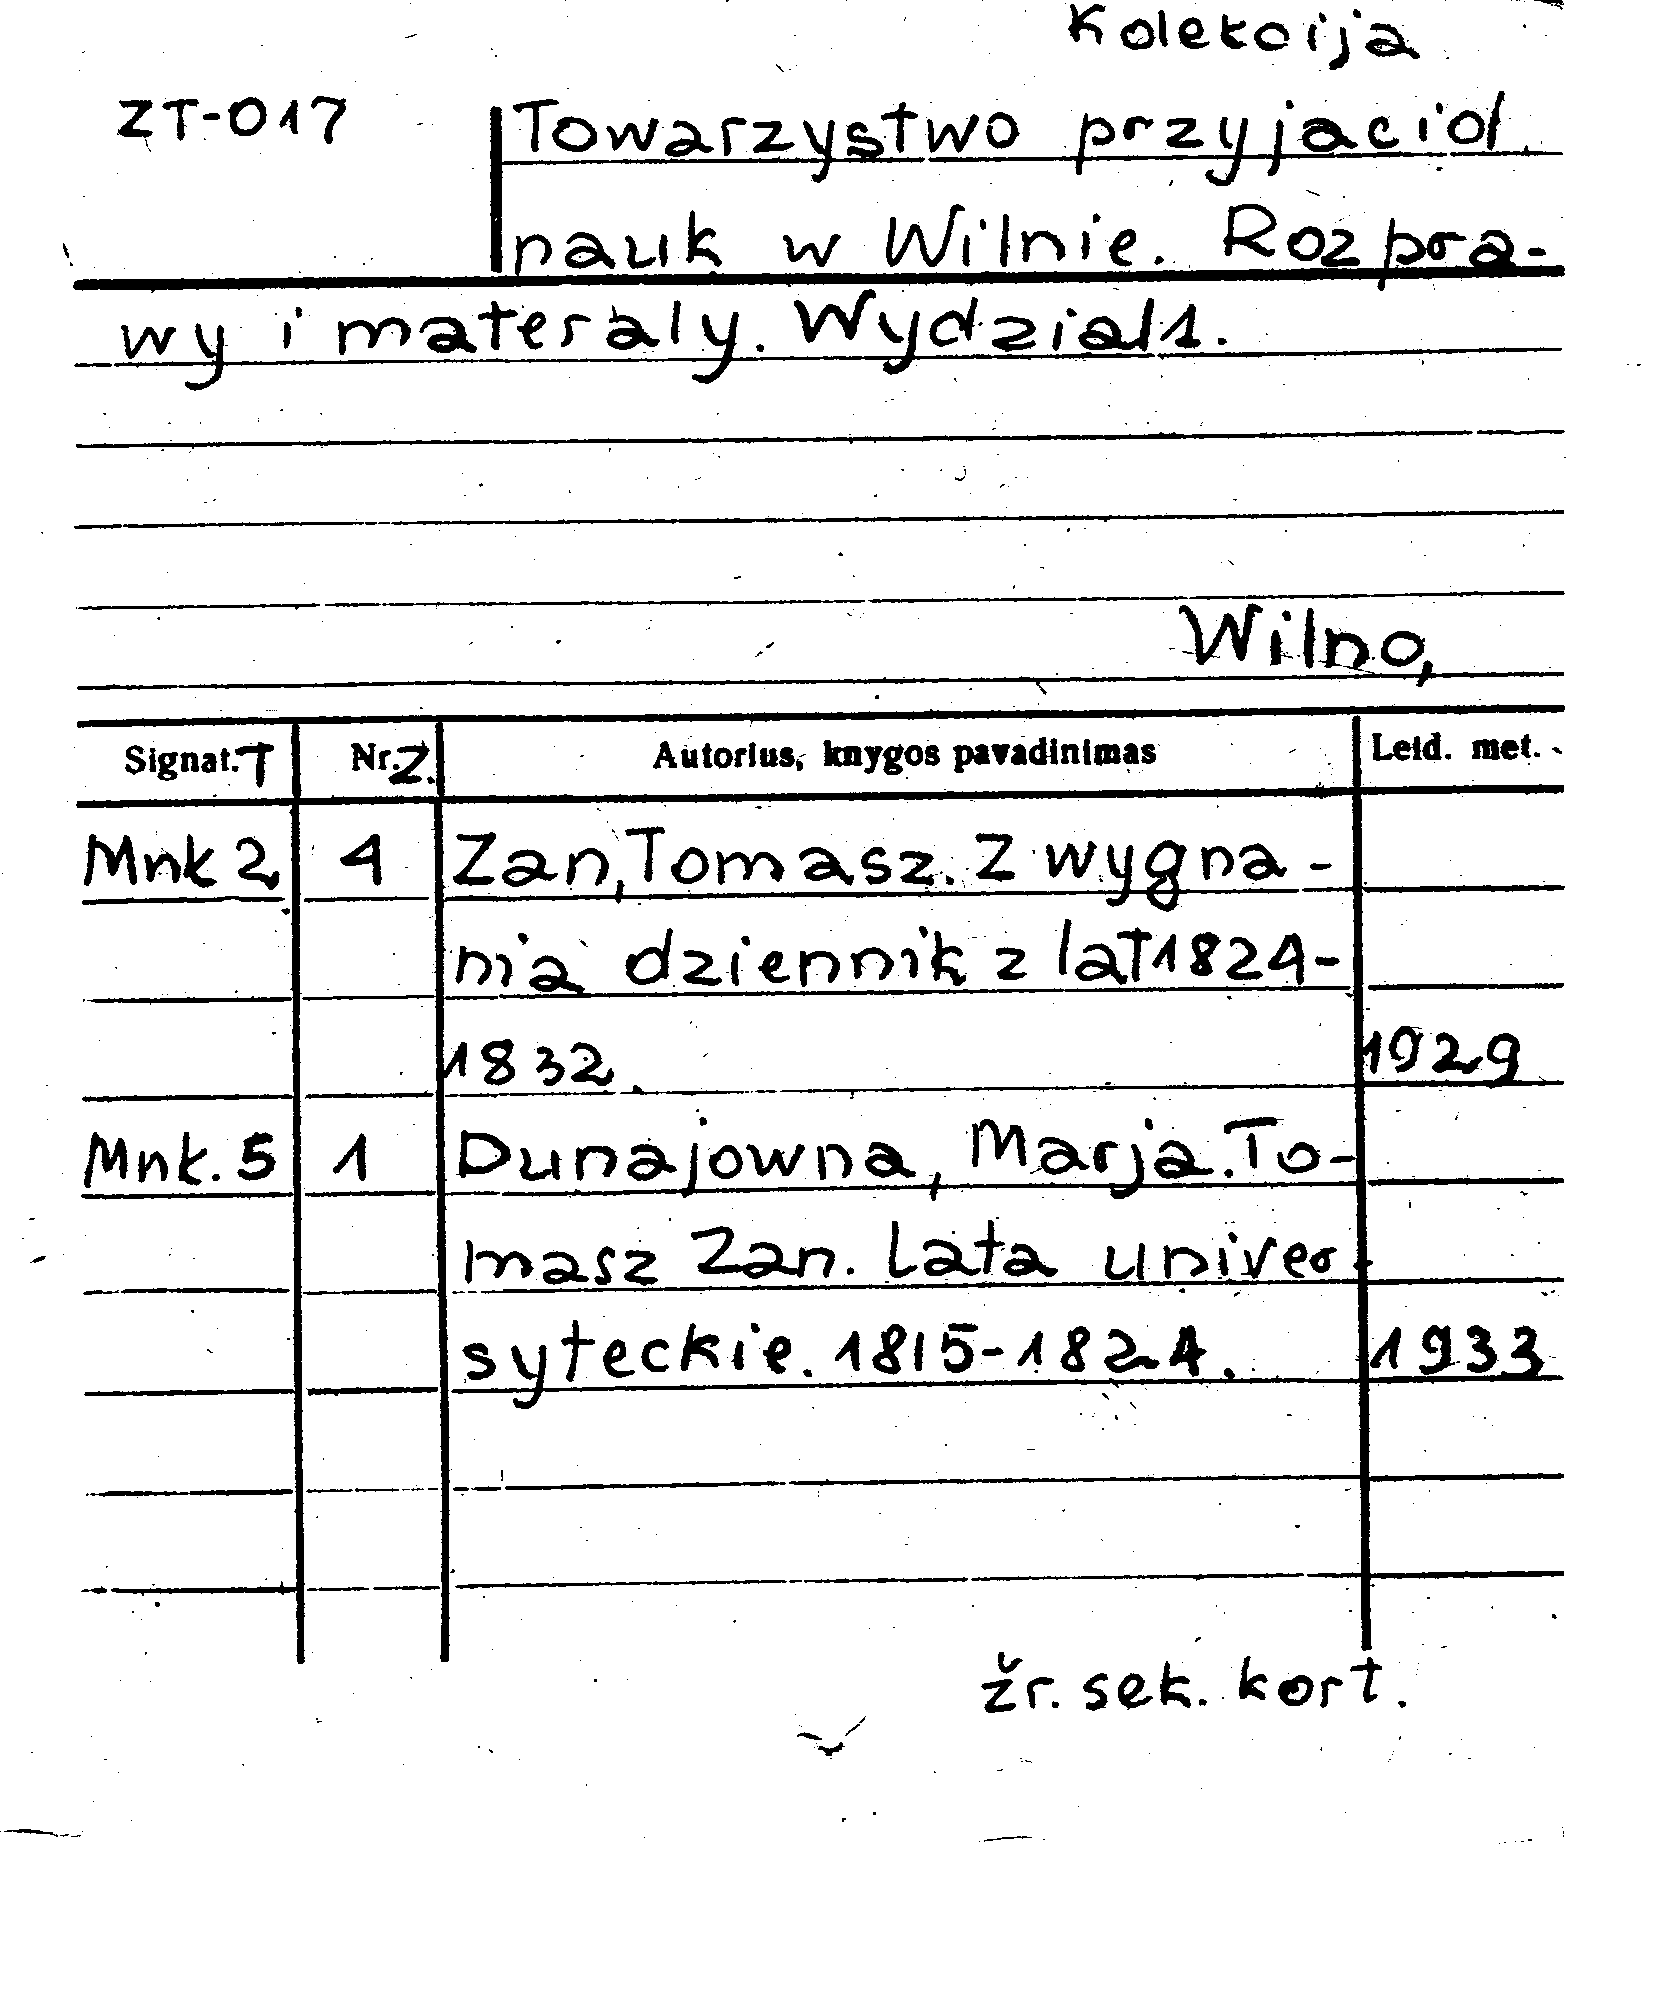 Kolekcija
ZT-017 Towarzystwo przyjaciol
nauk w Wilnie. Rozpra-
wy i materaly. Wydzial 1.
Wilno,
Signat. T Nr. Z. Autorius, knygos pavadinimas Leid. met.
Mnk 2 4 Zan, Tomasz. Z wygna-
nia dziennik z lat 1824-
1832. 1929
Mnk. 5 1 Dunajowna, Marja. To-
masz Zan. Lata univer-
syteckie. 1815-1824. 1933
žr. sek. kort.